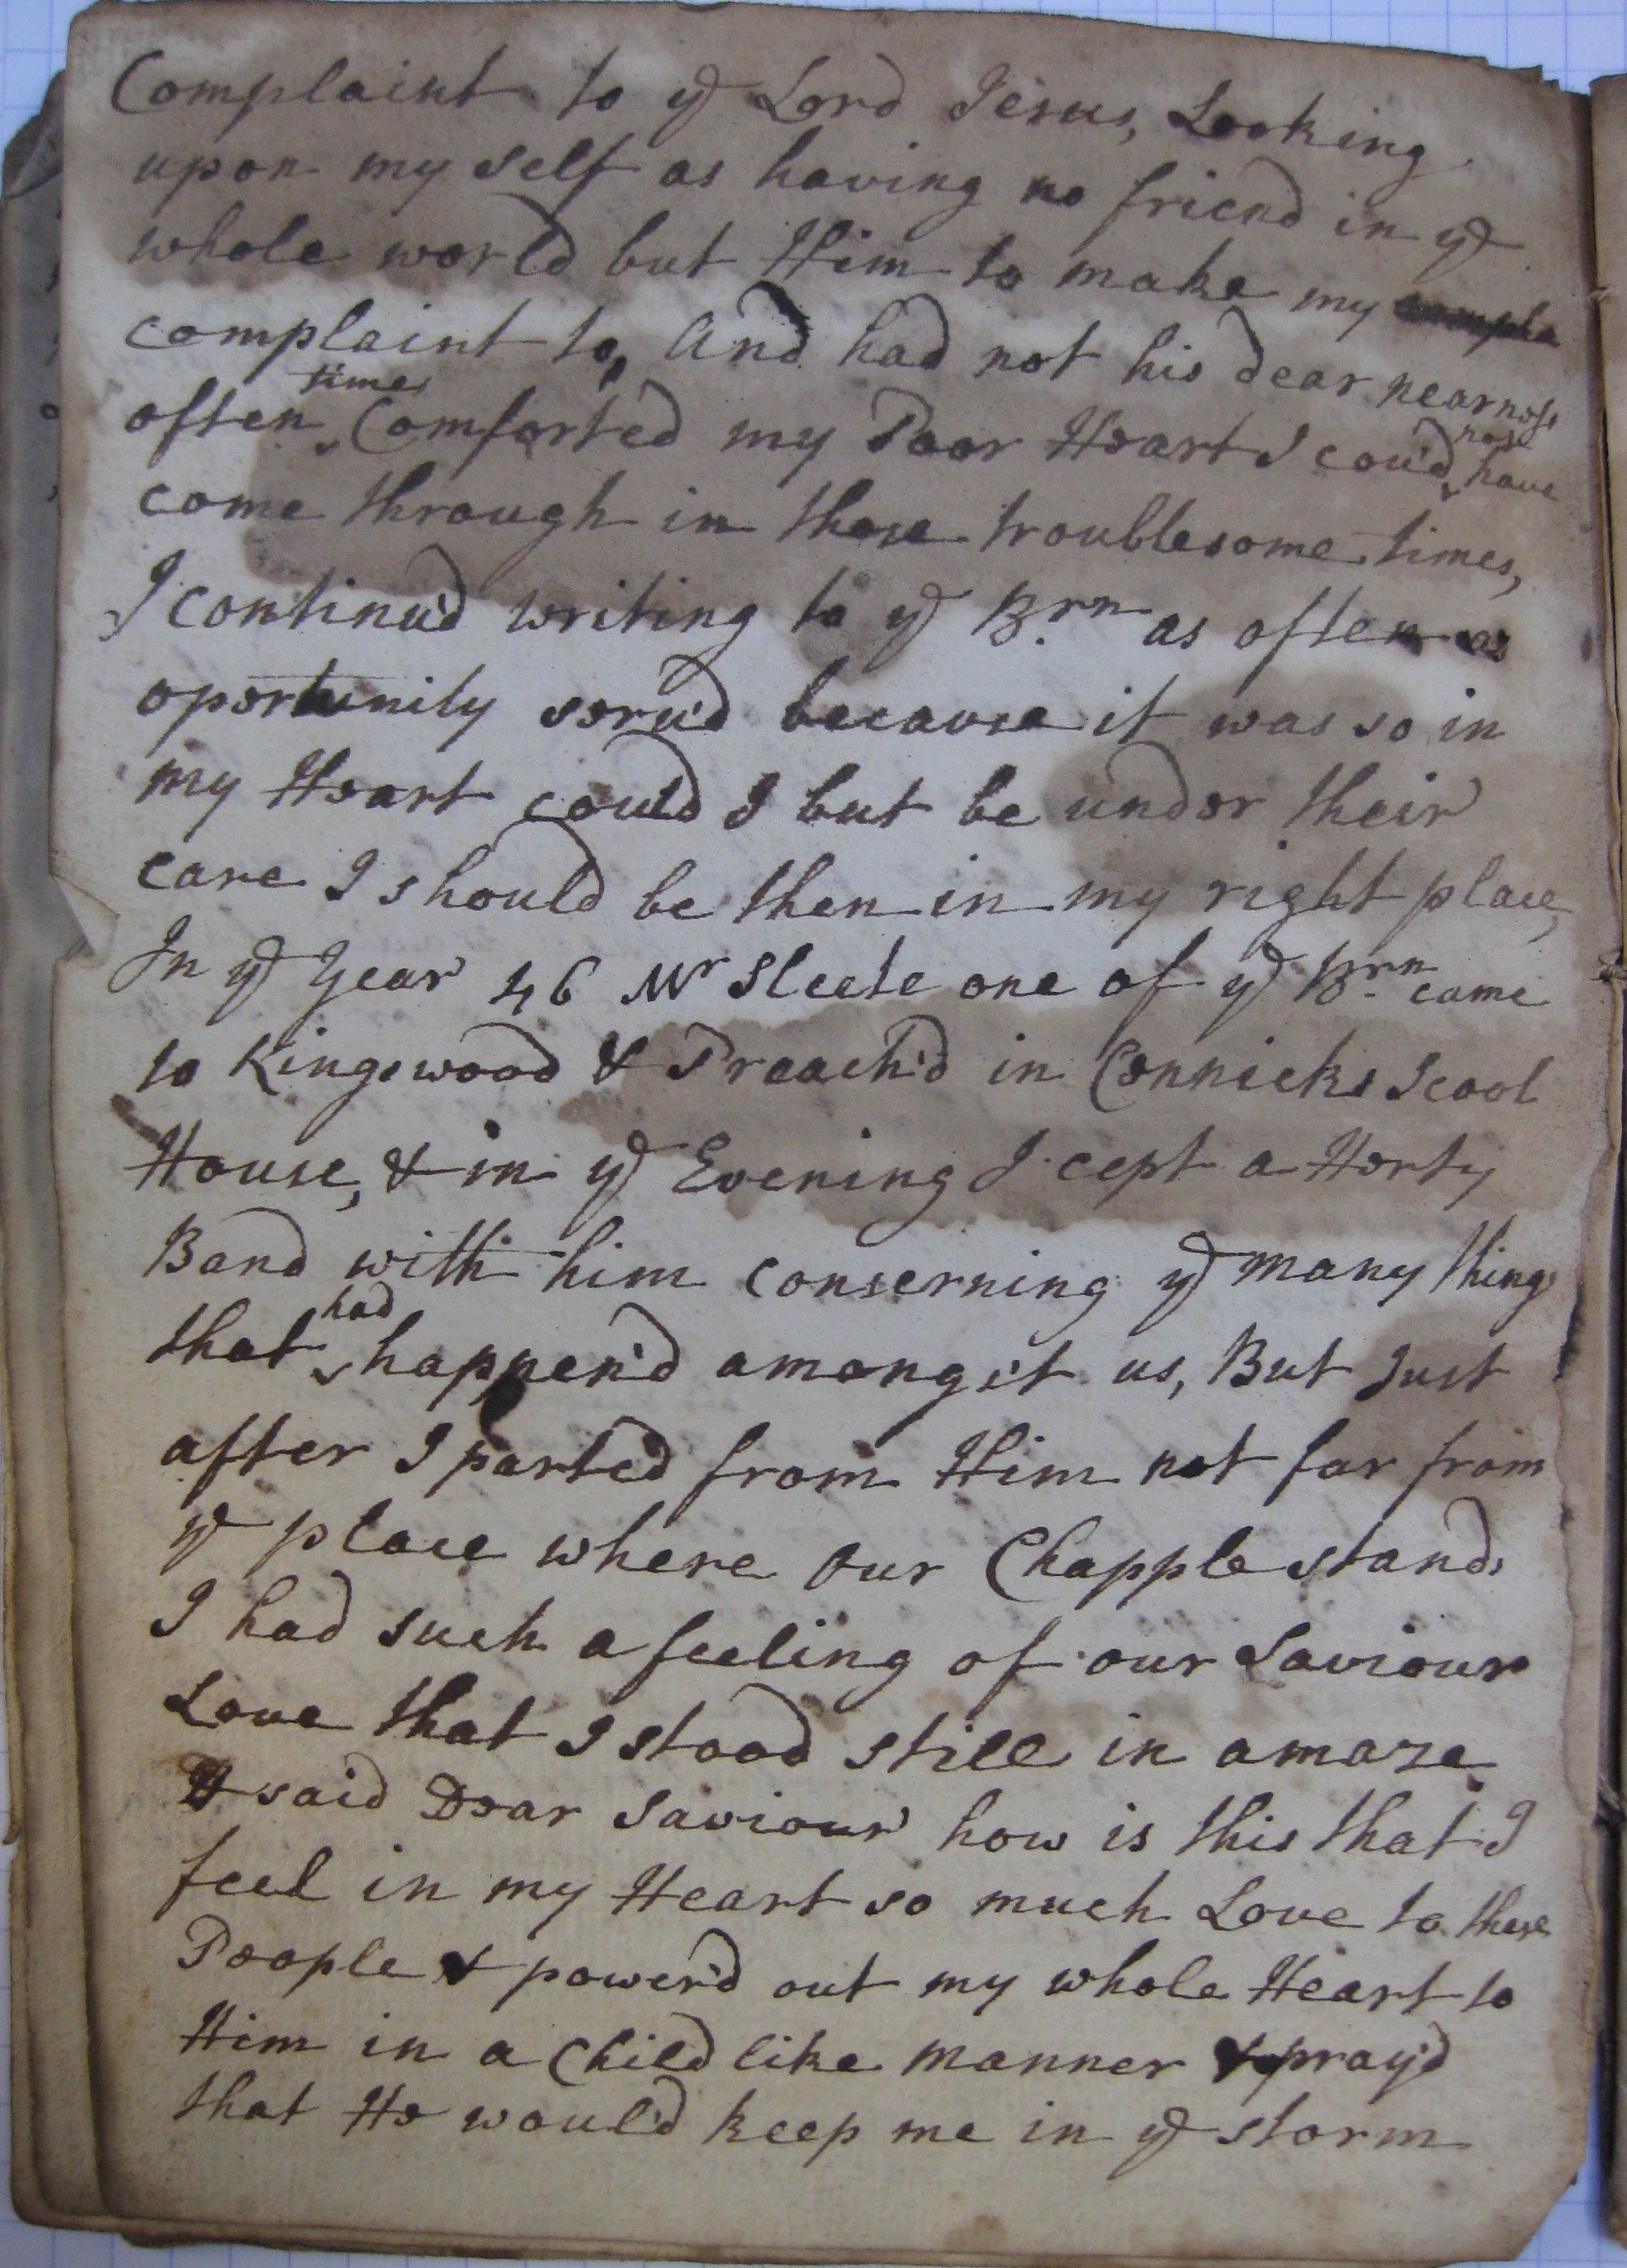 Complaint to ye Lord Jesus, Looking
upon my self as having no friend in ye
whole world but Him to make my compla
complaint to, And had not his dear nearness
often times Comforted my Poor Heart I cou'd not have
come through in those troublesome times,
I continu'd writing to ye Brn as often as
oportunity serv'd because it was so in
my Heart could I but be under their
care I should be then in my right place,
In ye Year 46 Mr Sleete one of ye Brn came
to Kingswood & Preach'd in Cennicks Scool
House, & in ye Evening I cept a Herty
Band with him conserning ye many things
that had happen'd amongst us, But Just
after I parted from Him not far from
ye place where our Chapple stands
I had such a feeling of our Saviours
Love that I stood still in amaze
& said Dear Saviour how is this that I
feel in my Heart so much Love to these
People & power'd out my whole Heart to
Him in a Child like manner & pray'd
that He would keep me in ye storm